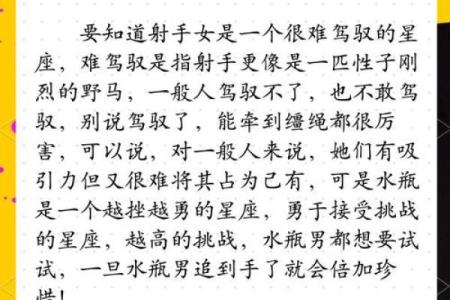 要知道射手女是一个很难驾驭的星
座，难驾驭是指射手更像是一匹性子刚
烈的野马，一般人驾驭不了，也不敢驾
驭，别说驾驭了，能牵到缰绳都很厉
害，可以说，对一般人来说，她们有吸
引力但又很难将其占为己有，可是水瓶
是一个越挫越勇的星座，勇于接受挑战
的星座，越高的挑战，水瓶男都想要试
试，一旦水瓶男追到手了就会倍加珍
惜！